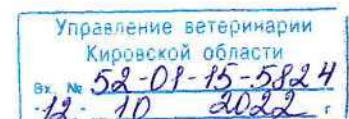 Управление ветеринарии
Кировской области
вх. № 52-01-15-5824
"12" 10 2022 г.